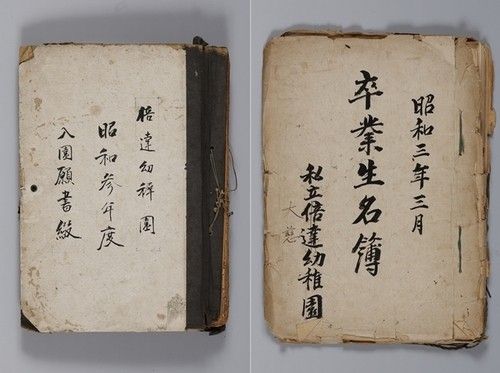 倍達幼稚園
昭和参年度
入園願書綴
昭和三年三月
卒業生名簿
私立倍達幼稚園
大慈